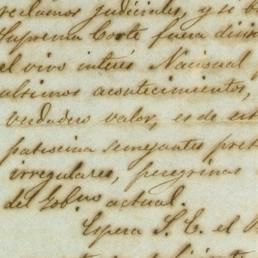 reclamos judiciales, y si
Suprema Corte fuera
el vivo interés Nacional
ultimos acontecimientos,
verdadero valor, es de
patissima semejantes
irregulares, peregrinas
del Gobno actual.
Espera S. E. el